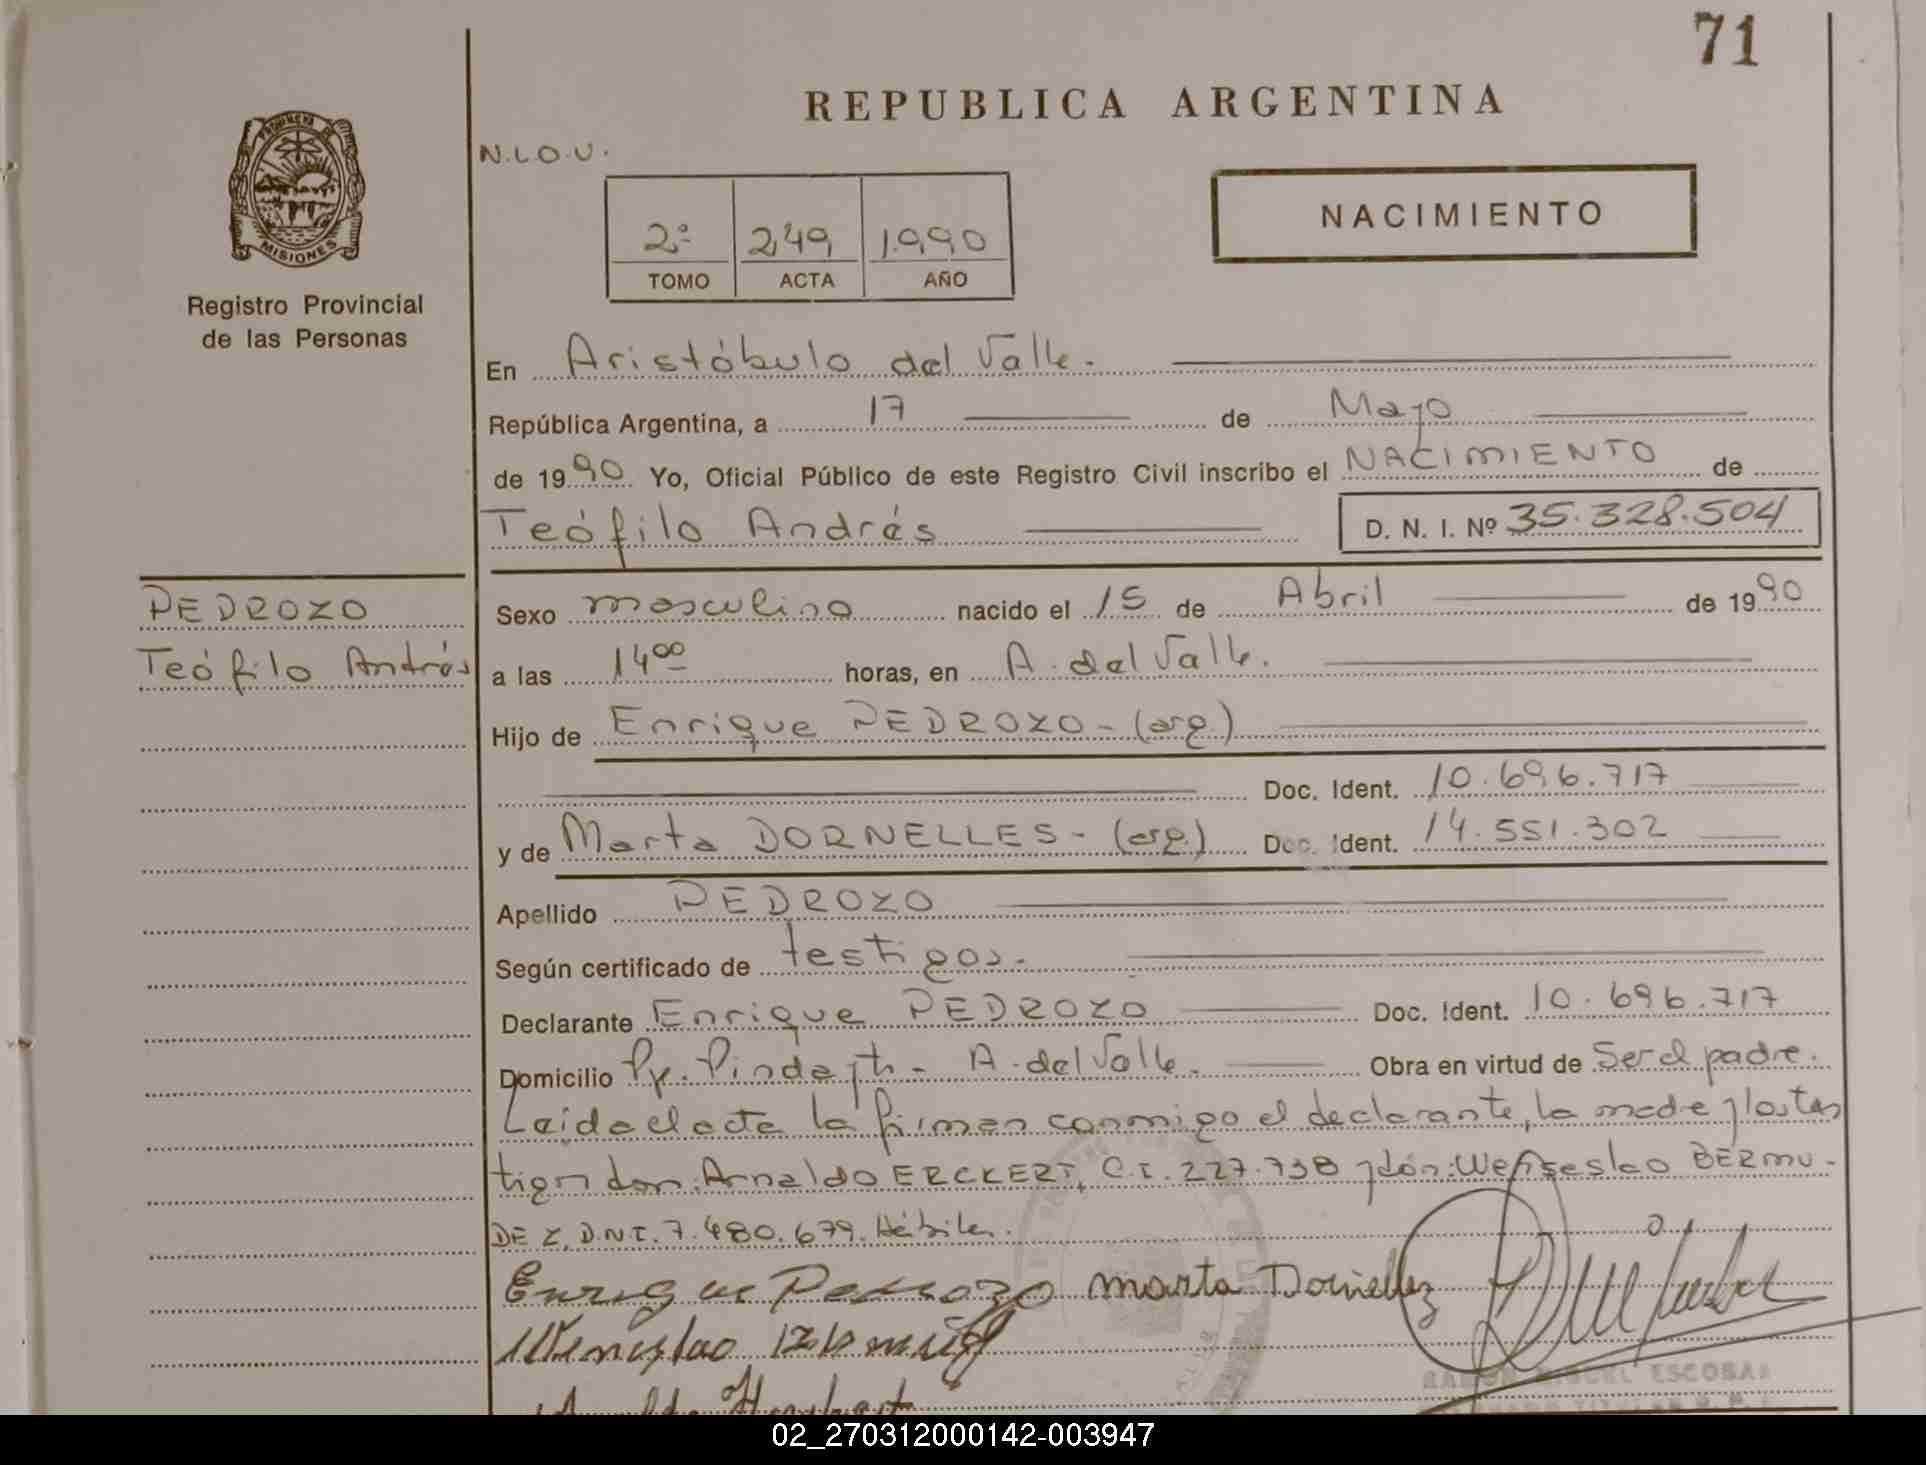 71
REPUBLICA ARGENTINA
PROVINCIA DE
MISIONES
Registro Provincial
de las Personas
N.L.O.U.
2º 249 1.990
TOMO ACTA AÑO
NACIMIENTO
En Aristóbulo del Valle.
República Argentina, a 17 de Mayo
de 1990 Yo, Oficial Público de este Registro Civil inscribo el NACIMIENTO de
Teófilo Andrés D. N. I. Nº 35.328.504
PEDROZO
Teófilo Andrés
Sexo masculino nacido el 15 de Abril de 1990
a las 14 00 horas, en A. del Valle.
Hijo de Enrique PEDROZO - (arg.)
Doc. Ident. 10.696.717
y de Marta DORNELLES - (arg.) Doc. Ident. 14.551.302
Apellido PEDROZO
Según certificado de testigos.
Declarante Enrique PEDROZO Doc. Ident. 10.696.717
Domicilio A. del Valle. Obra en virtud de Ser el padre.
Leída el acta la firman conmigo el declarante, la madre y los tes
tigos don: Arnaldo ERCKERT, C.I. 227.738 y don: Wenseslao BERMU-
DEZ, D.N.I. 7.480.679. Hábiles.
Enrique Pedrozo Marta Dornellez
MIGUEL ESCOBAR
02_270312000142-003947